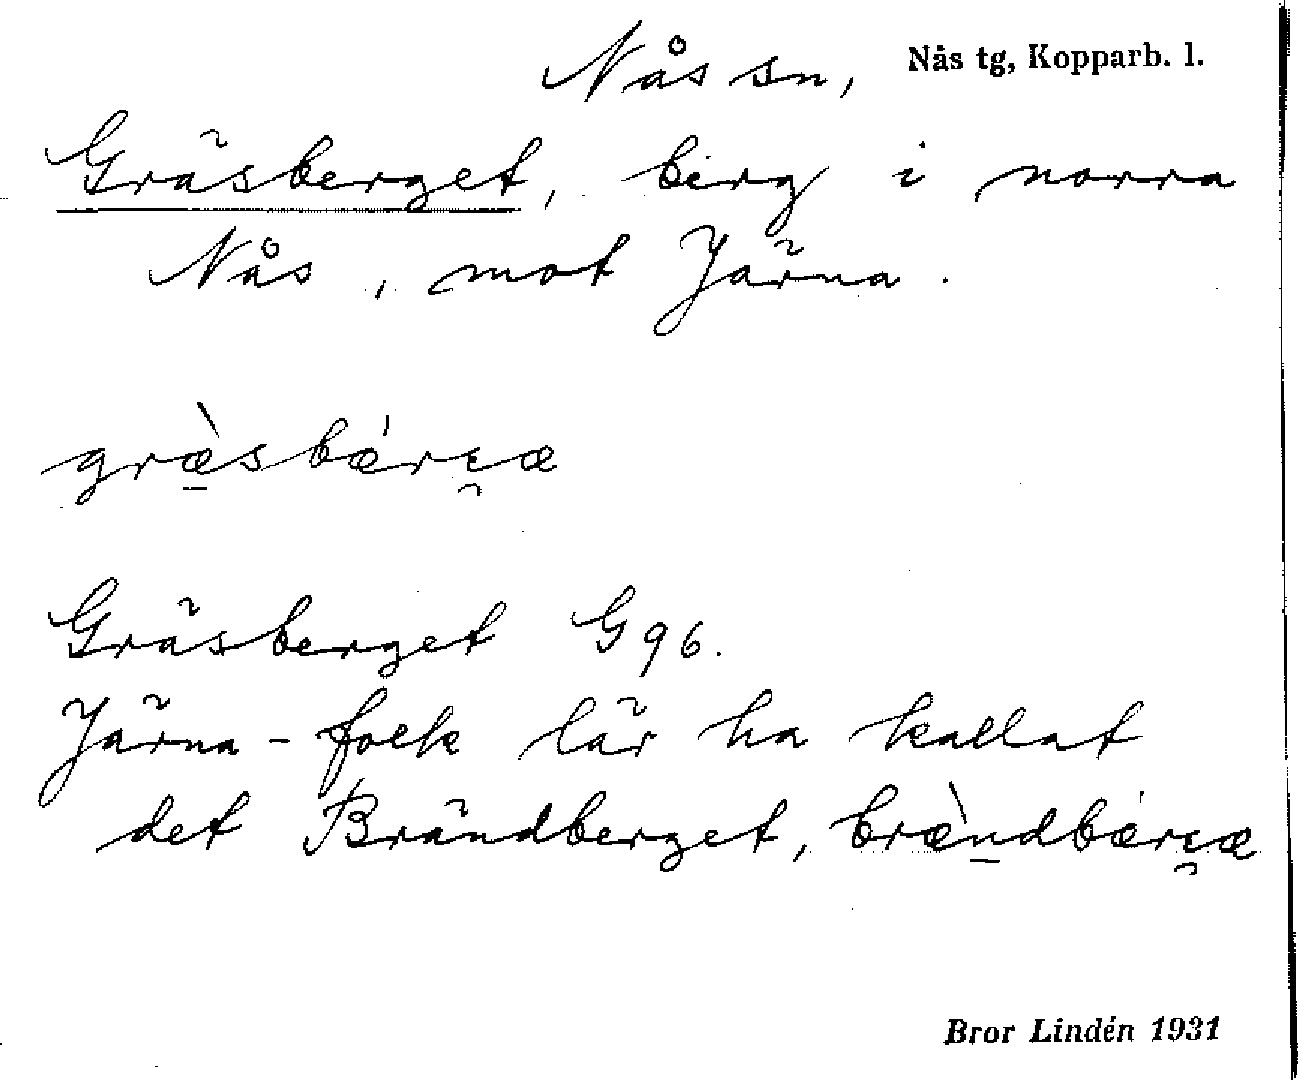 Nås sn, Nås tg, Kopparb. l.
Gräsberget, berg i norra
Nås, mot Järna.
græ̀sbǽrɩ̯æ
Gräsberget G 96.
Järna-folk lär ha kallat
det Brändberget, bræ̀ndbǽrɩ̯æ
Bror Lindén 1931